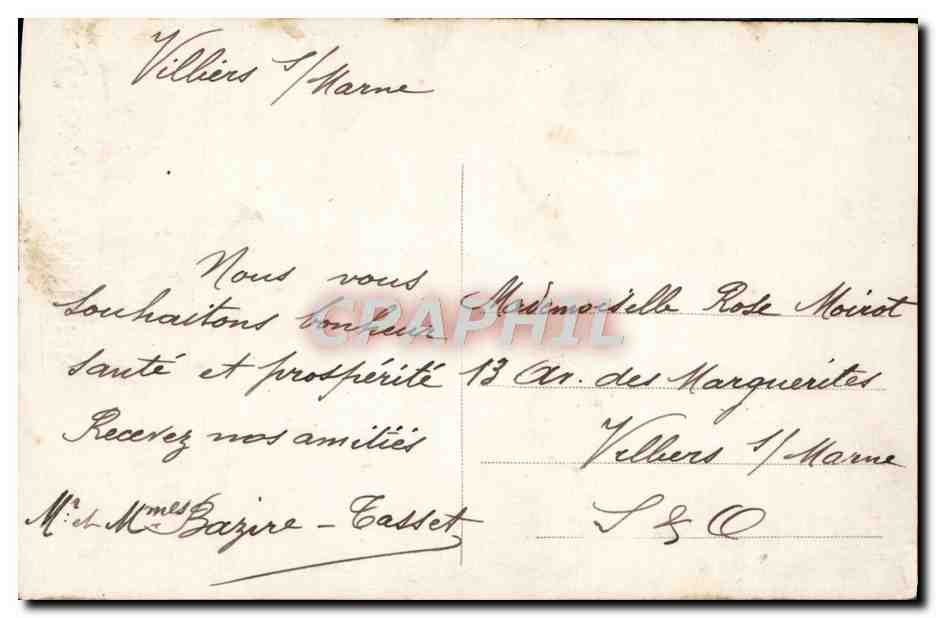 Villiers s/Marne
Nous vous
souhaitons bonheur
santé et prospérité
Recevez nos amitiés
Mr et Mmes Bazire - Tasset
Mademoiselle Rose Moirot
13 Av. des Marguerites
Villiers s/Marne
S & O
CPAPHIL